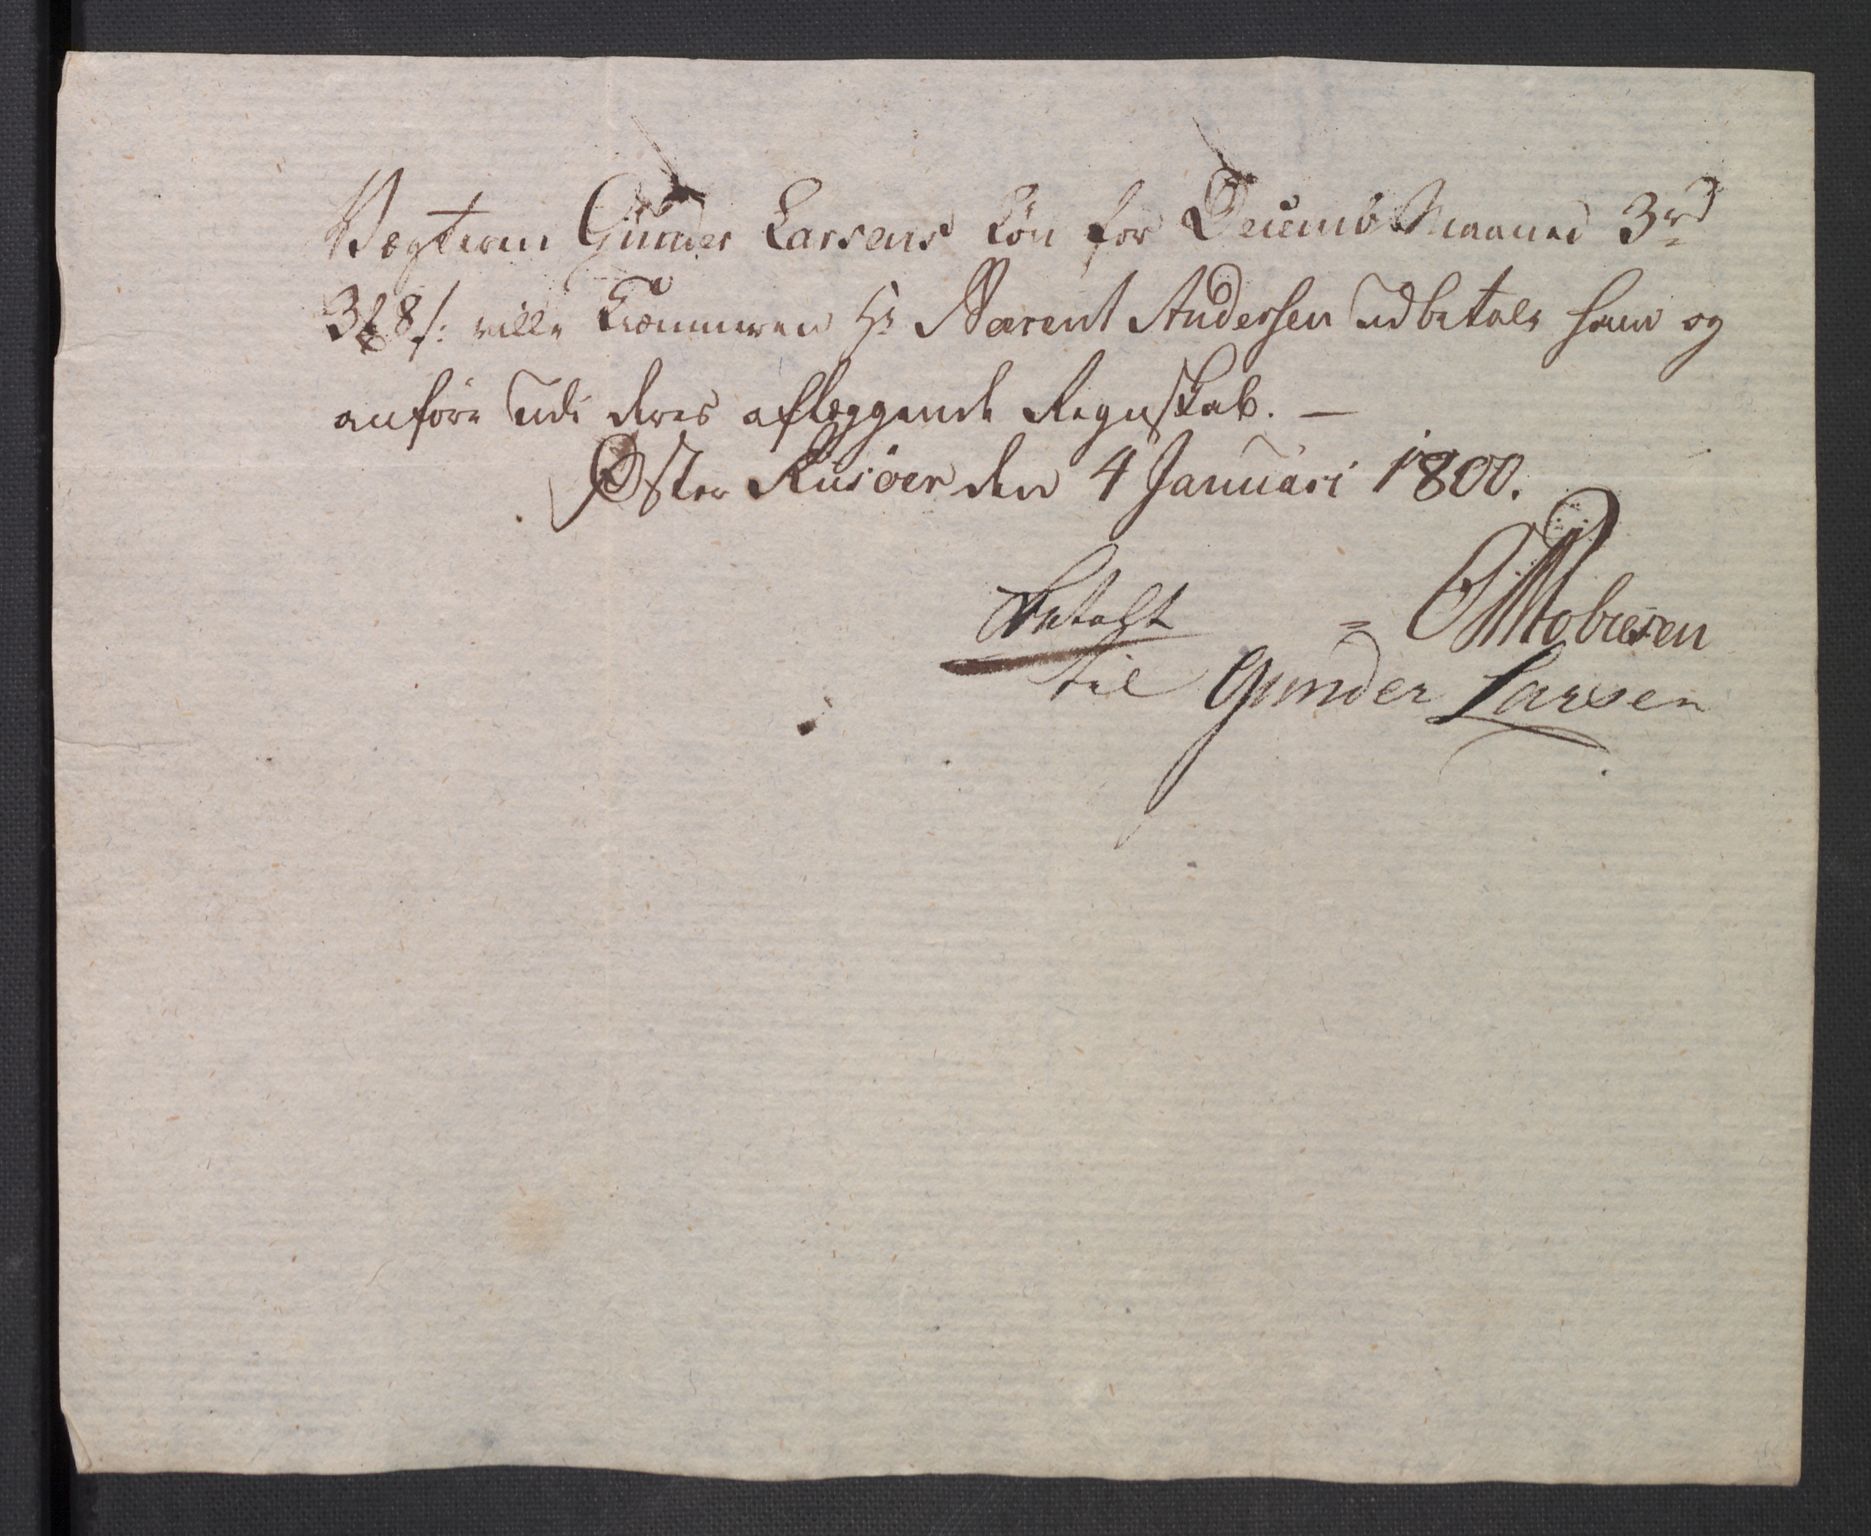 Vægteren Gunder Larsens Løn for Decemb: Maaned 3 rd
3 ℔ 8 s: ville Kiæmneren Hr Berent Andersen udbetale ham og
anføre udi deres aflæggende Regnskab. —
Øster Riisøer den 4 Januari 1800.
Tobiesen
Betalt
til Gunder Larsen